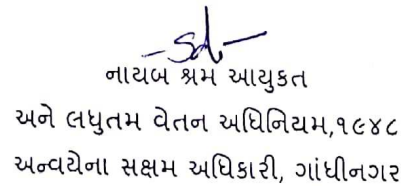 -Sd-
નાયબ શ્રમ આયુકત
અને લધુતમ વેતન અધિનિયમ,૧૯૪૮
અન્વયેના સક્ષમ અધિકારી, ગાંધીનગર